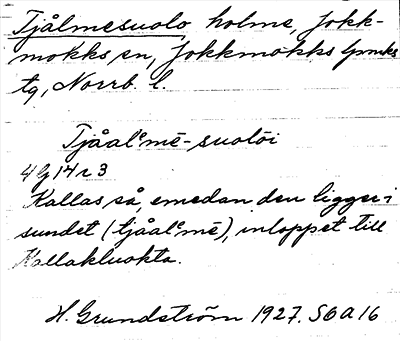 Tjålmesuolo, holme, Jokk-
mokks sn, Jokkmokks lpmks
tg, Norrb. l.
Tjåalᵉmē-suolōi
4g14r3
Kallas så, emedan den ligger i
sundet (tjåalᵉmē), inloppet till
Kallakluokta.
H. Grundström 1927. S6a16